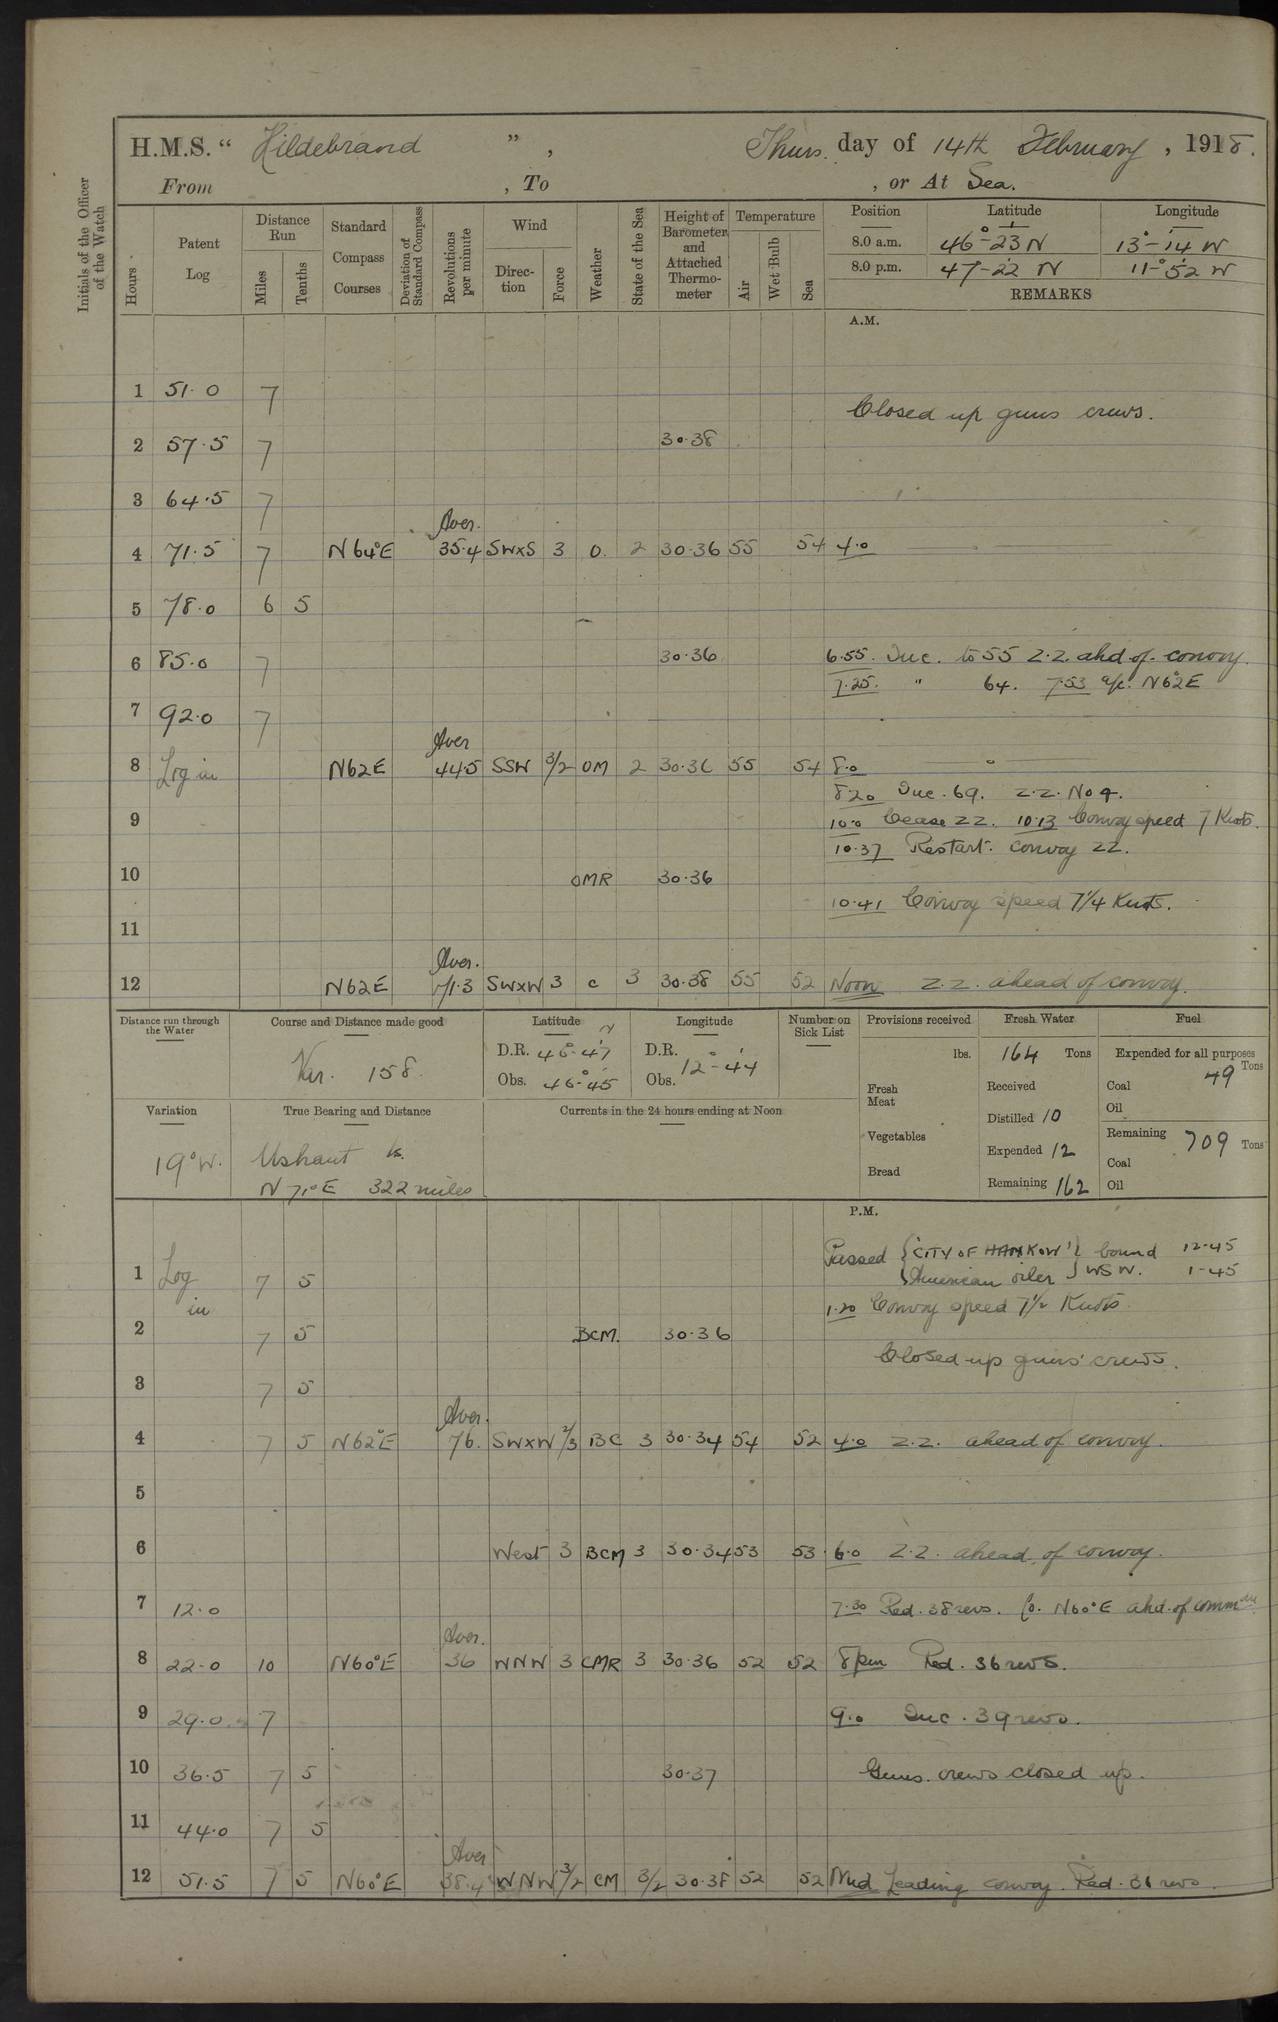 H.M.S. “ Hildebrand ” , Thurs. day of 14th February , 1918.
From , To , or At Sea.
Initials of the Officer of the Watch
Hours Patent Log Distance Run Miles Tenths Standard Compass Courses Deviation of Standard Compass Revolutions per minute Wind Direc-tion Force Weather State of the Sea Height of Barometer and Attached Thermo-meter Temperature Air Wet Bulb Sea
Position Latitude Longitude
8.0 a.m. 46°-23' N 13°-14' W
8.0 p.m. 47-22 N 11°-52' W
REMARKS
A.M.
1 51.0 7
Closed up guns crews.
2 57.5 7 30.38
3 64.5 7
Aver.
4 71.5 7 N64°E 35.4 SWxS 3 O. 2 30.36 55 54 4.0
5 78.0 6 5
6 85.0 7 30.36 6.55. Inc. to 55 Z.Z. ahd. of. convoy.
7.25. " 64. 7.53 a/c. N62°E
7 92.0 7
Aver
8 Log in N62E 44.5 SSW 3/2 OM 2 30.36 55 54 8.0
8.20 Inc. 69. Z.Z. No 9.
9
10.0 Cease ZZ. 10.13 Convoy speed 7 Knots.
10.37 Restart. convoy ZZ.
10 OMR 30.36
10.41 Convoy speed 7 1/4 Knots.
11
Aver.
12 N62E 71.3 SWxW 3 c 3 30.38 55 52 Noon Z.Z. ahead of convoy.
Distance run through the Water Course and Distance made good Latitude Longitude Number on Sick List Provisions received Fresh Water Fuel
Var. 158.
D.R. 46°-47' N D.R. 12°-44'
Obs. 46°-45' Obs.
lbs. 164 Tons Expended for all purposes
Fresh Meat Received Coal 49 Tons
Distilled 10 Oil
Vegetables Expended 12 Remaining 709 Tons
Bread Remaining 162 Coal
Oil
Variation True Bearing and Distance Currents in the 24 hours ending at Noon
19°W. Ushant Is.
N 71°E 322 miles
P.M.
Passed { 'CITY OF HANKOW' } bound 12-45
1 Log in 7 5 American oiler } WSW. 1-45
1.20 Convoy speed 7 1/2 Knots.
2 7 5 BCM. 30.36
Closed up guns' crews.
3 7 5
Aver.
4 7 5 N62°E 76. SWxW 2/3 BC 3 30.34 54 52 4.0 Z.Z. ahead of convoy.
5
6 West 3 BCM 3 30.34 53 53 6.0 Z.Z. ahead of convoy.
7 12.0 7.30 Red. 38 revs. Co. N60°E ahd. of
Aver.
8 22.0 10 N60°E 36 WNW 3 CMR 3 30.36 52 52 8pm Red. 36 revs.
9 29.0 7 9.0 Inc. 39 revs.
10 36.5 7 5 30.37 Guns. crews closed up.
11 44.0 7 5
Aver
12 51.5 7 5 N60°E 38.4 WNW 3/2 CM 3/2 30.38 52 52 Mid Leading convoy. Red. 36 revs.